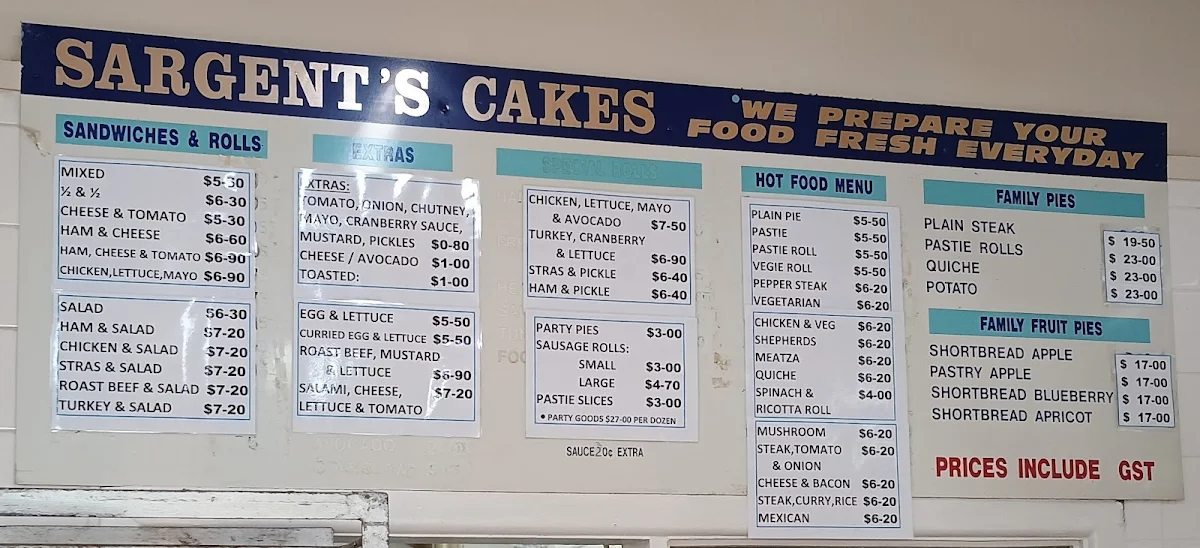 SARGENT'S CAKES
WE PREPARE YOUR
FOOD FRESH EVERYDAY
SANDWICHES & ROLLS
MIXED $5-30
½ & ½ $6-30
CHEESE & TOMATO $5-30
HAM & CHEESE $6-60
HAM, CHEESE & TOMATO $6-90
CHICKEN,LETTUCE,MAYO $6-90
SALAD $6-30
HAM & SALAD $7-20
CHICKEN & SALAD $7-20
STRAS & SALAD $7-20
ROAST BEEF & SALAD $7-20
TURKEY & SALAD $7-20
EXTRAS
EXTRAS:
TOMATO, ONION, CHUTNEY,
MAYO, CRANBERRY SAUCE,
MUSTARD, PICKLES $0-80
CHEESE / AVOCADO $1-00
TOASTED: $1-00
EGG & LETTUCE $5-50
CURRIED EGG & LETTUCE $5-50
ROAST BEEF, MUSTARD
& LETTUCE $6-90
SALAMI, CHEESE, $7-20
LETTUCE & TOMATO
SPECIAL ROLLS
CHICKEN, LETTUCE, MAYO
& AVOCADO $7-50
TURKEY, CRANBERRY
& LETTUCE $6-90
STRAS & PICKLE $6-40
HAM & PICKLE $6-40
PARTY PIES $3-00
SAUSAGE ROLLS:
SMALL $3-00
LARGE $4-70
PASTIE SLICES $3-00
• PARTY GOODS $27-00 PER DOZEN
SAUCE 20c EXTRA
HOT FOOD MENU
PLAIN PIE $5-50
PASTIE $5-50
PASTIE ROLL $5-50
VEGIE ROLL $5-50
PEPPER STEAK $6-20
VEGETARIAN $6-20
CHICKEN & VEG $6-20
SHEPHERDS $6-20
MEATZA $6-20
QUICHE $6-20
SPINACH & $4-00
RICOTTA ROLL
MUSHROOM $6-20
STEAK,TOMATO $6-20
& ONION
CHEESE & BACON $6-20
STEAK,CURRY,RICE $6-20
MEXICAN $6-20
FAMILY PIES
PLAIN STEAK $ 19-50
PASTIE ROLLS $ 23-00
QUICHE $ 23-00
POTATO $ 23-00
FAMILY FRUIT PIES
SHORTBREAD APPLE $ 17-00
PASTRY APPLE $ 17-00
SHORTBREAD BLUEBERRY $ 17-00
SHORTBREAD APRICOT $ 17-00
PRICES INCLUDE GST